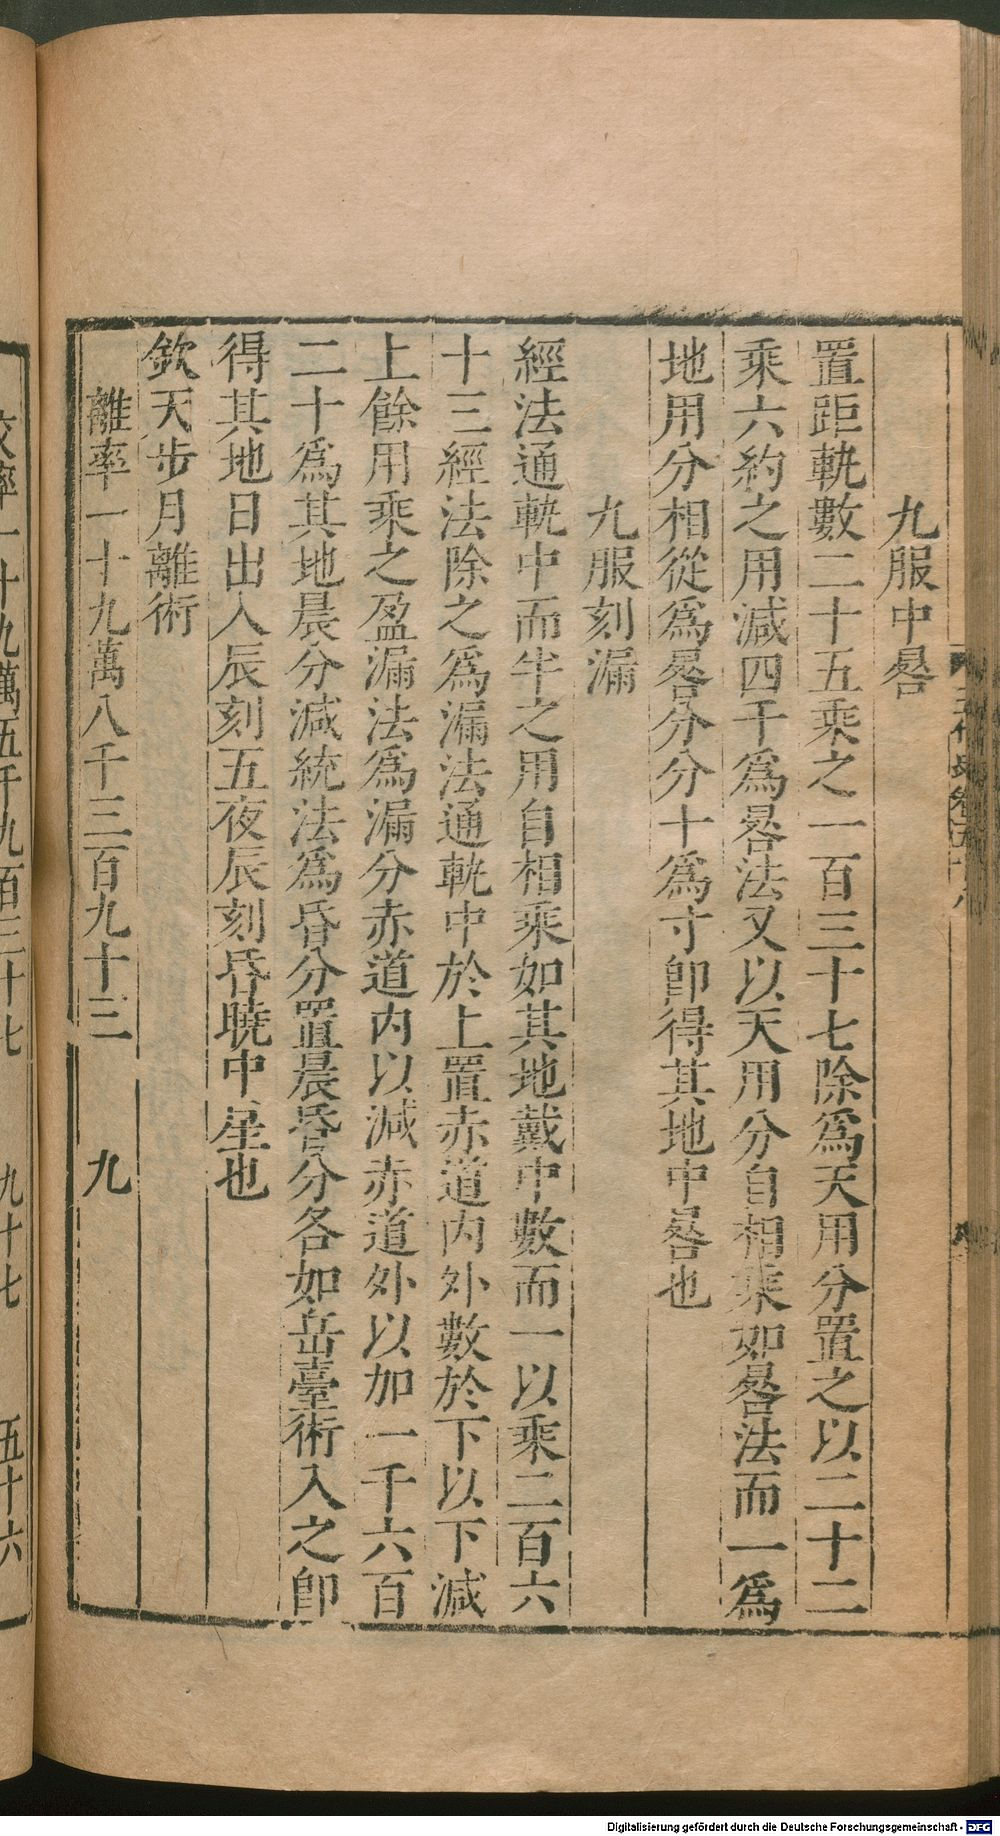 九服中晷
置距軌數二十五乘之一百三十七除爲天用分置之以二十二
乘六約之用減四千爲晷法又以天用分自相乘如晷法而一爲
地用分相從爲晷分分十爲寸卽得其地中晷也
九服刻漏
經法通軌中而半之用自相乘如其地戴中數而一以乘二百六
十三經法除之爲漏法通軌中於上置赤道內外數於下以下減
上餘用乘之盈漏法爲漏分赤道內以減赤道外以加一千六百
二十爲其地晨分減統法爲昏分置晨昏分各如岳臺術入之卽
得其地日出入辰刻五夜辰刻昏曉中星也
欽天步月離術
離率一十九萬八千三百九十三 九
交率一十九萬五千九百三十七 九十七 五十六
Digitalisierung gefördert durch die Deutsche Forschungsgemeinschaft - DFG